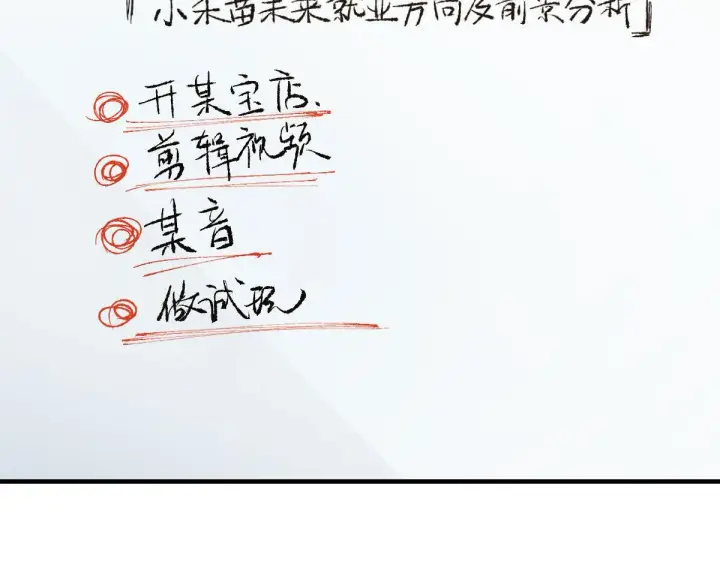 「小朱苗未来就业方向及前景分析」
开某宝店.
剪辑视频
某音
做试玩